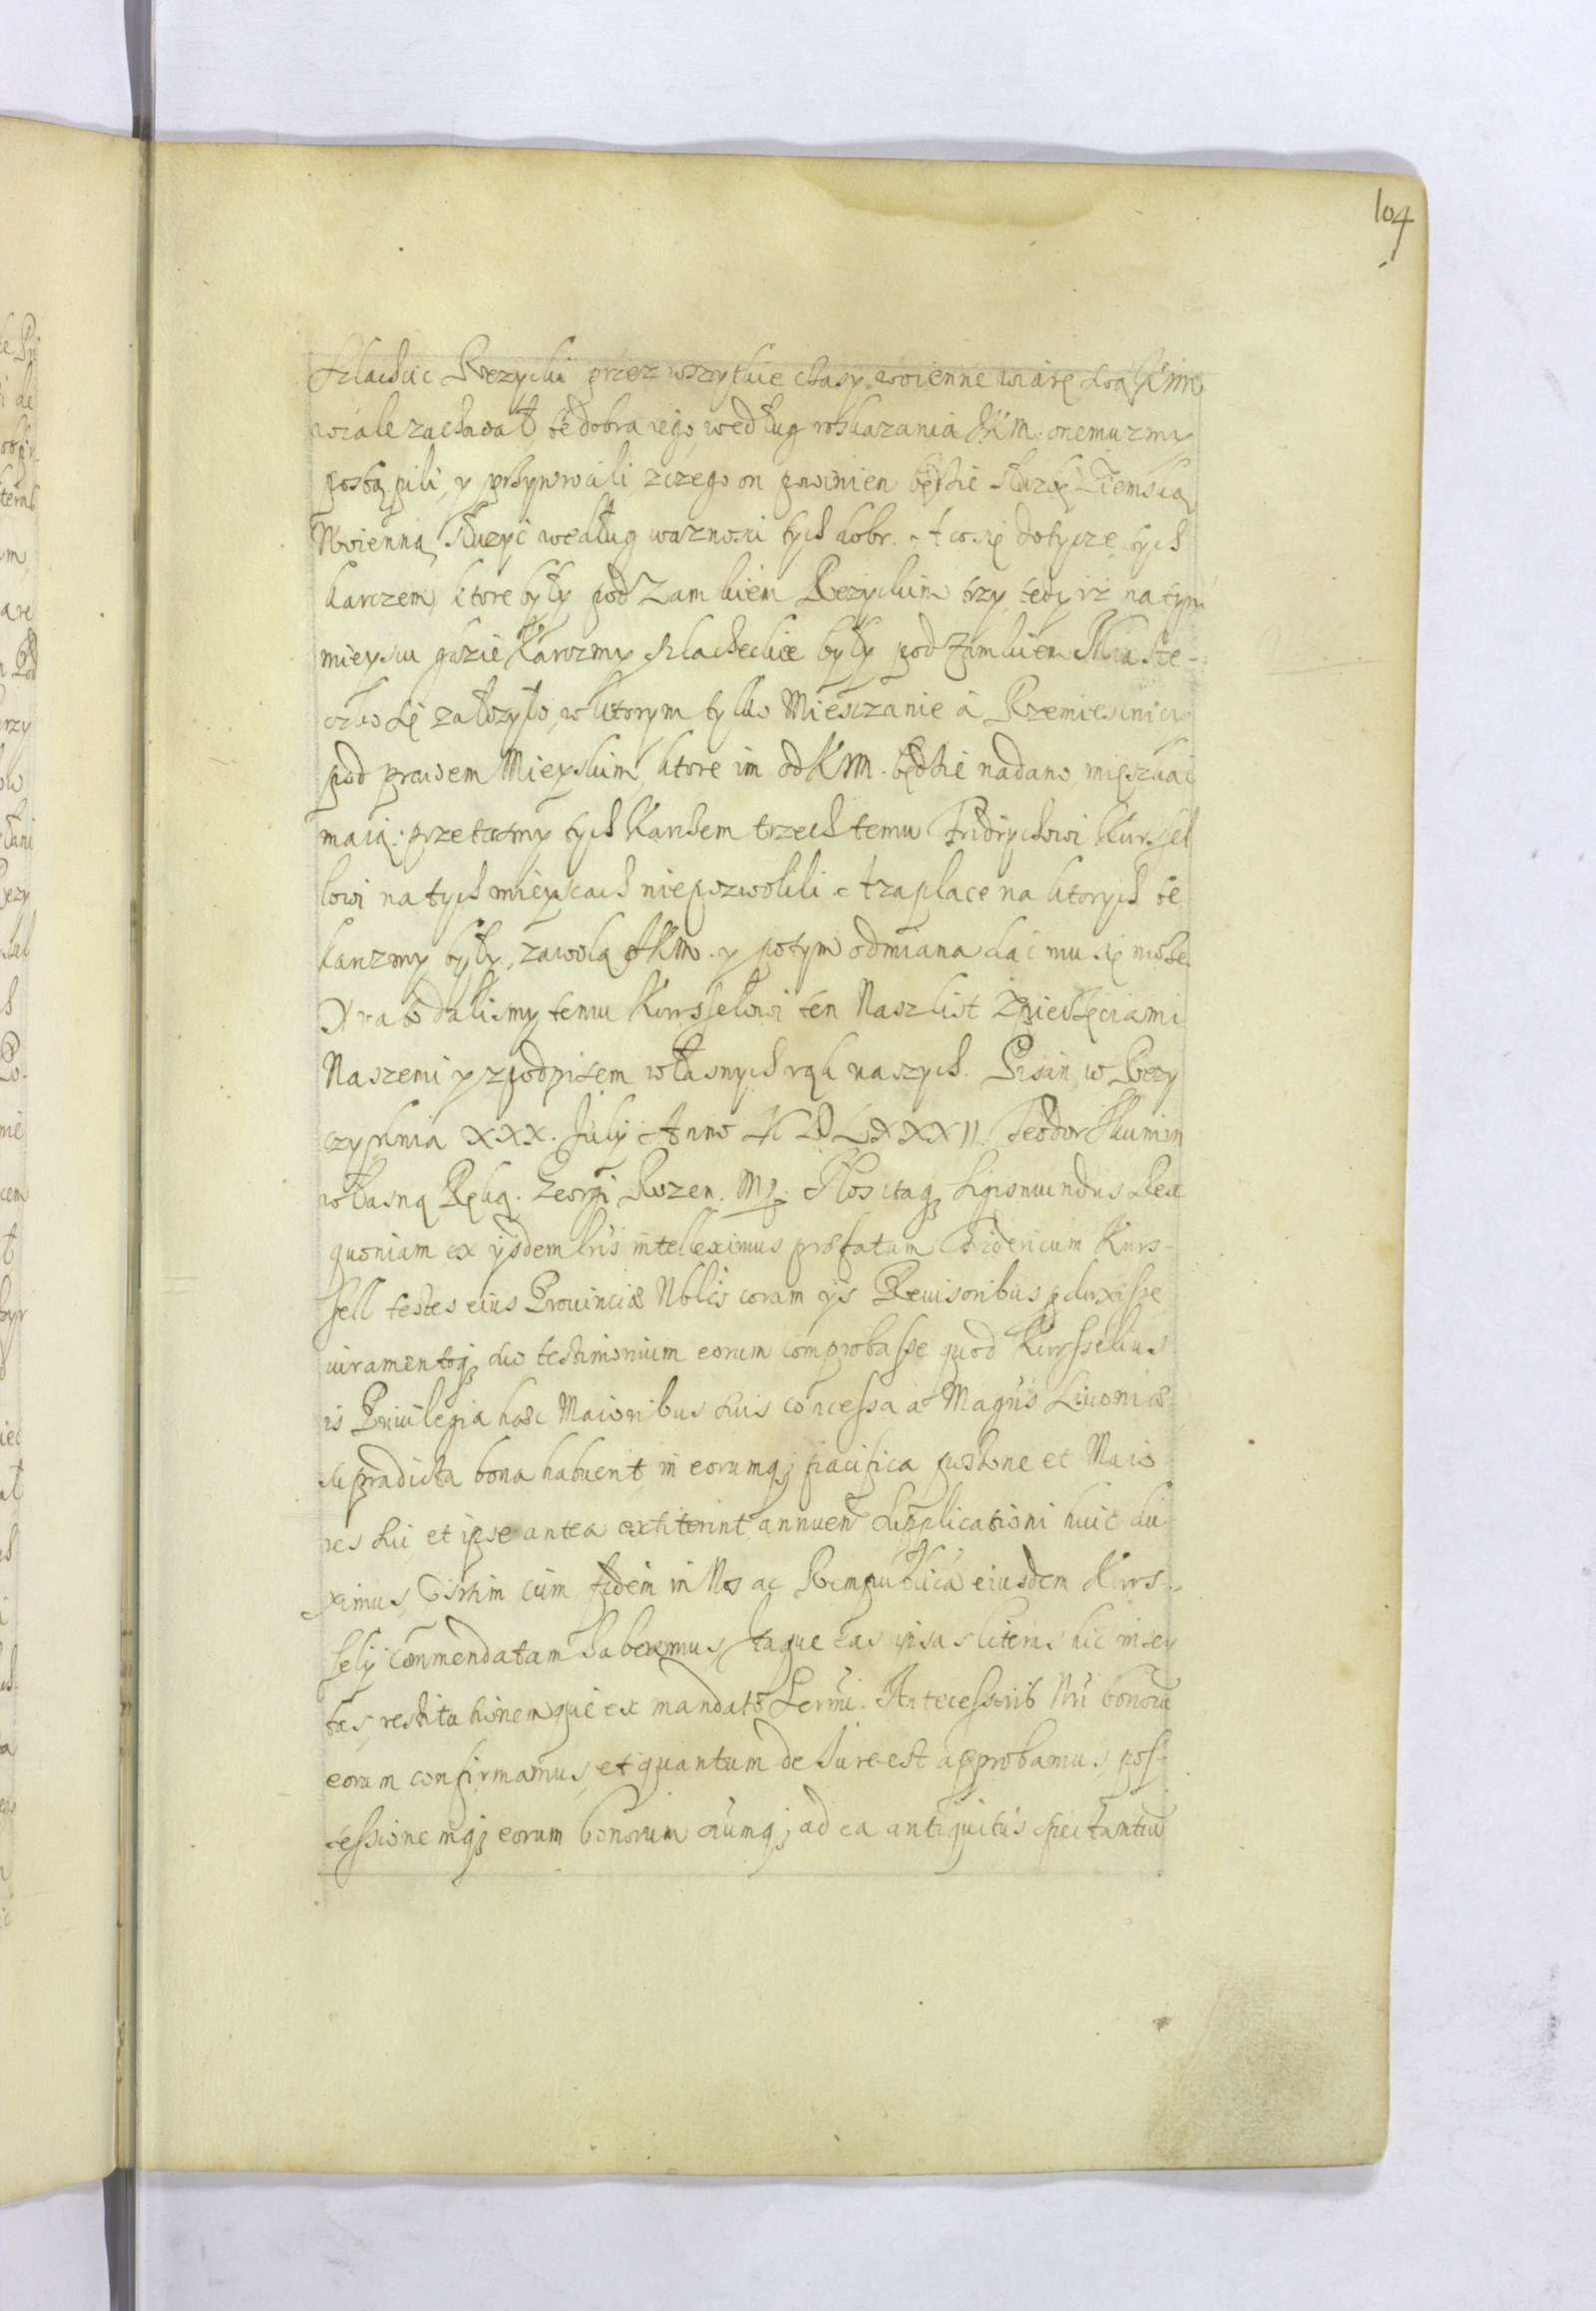 104
Szlachcic Rezycki przez wszytkie czasy woienne wiarę swą KJM
wcale zachował, te dobra iego według roskazania JKM. onemuzmy
postąpili, y przywrocili, zczego on powinien będzie służbę Ziemską
Woienną służyć według ważnosci tych dobr. A co się dotycze tych
karczem, ktore były pod Zamkiem Rezyckim trzy, tedy iż na tym
mieyscu gdzie Karczmy szlacheckie były pod Zamkiem Miaste-
czko się załozyło, w ktorym tylko Miesczanie á Rzemiesnicy
pod prawem Mieyskim, ktore im od KJM. będzie nadano, mięszkac
maią: przetosmy tych Karczem trzech temu Fridrychowi Kursel
lowi na tych mieyscach niepozwolili. A za place na ktorych te
karczmy były, zawolą JKM. y potym odmiana dac mu się może.
Y na to dalismy temu Kursselowi ten Nasz list Zpieczęciami
Naszemi y zpodpisem własnych rąk naszych. Pisan w Rezy
czy dnia XXX. July Anno MDLXXXII. Teodor Skumin
własną Ręką. Zeorgi Rozen. Mp. Nos itaq; Sigismundus Rex
quoniam ex ijsdem lris intelleximus præfatum Fridericum Kurs-
sell testes eius Prouinciæ Nobles coram ijs Reuisoribus pduxisse
iuramentoq; suo testimonium eorum comprobasse quod Kursselius
is Priuilegia hæc Maioribus suis concessa à Magris Liuoniæ
supradicta bona habuerit, in eorumq; pacifica possessione et Maio
res sui, et ipse antea extiterint, annuen supplicationi huic du
ximus, Gum cum fidem in Nos ac Rempublica eiusdem Kurs-
selij commendatam habeamus, Itaque eas ipsas literas hic inser
tas, restitutionemque ex mandato Sermi. Antecessoris Nri bonoru
eorum confirmamus, et quantum de Iure est approbamus, pos-
sessionemq; eorum bonorum oiumq; ad ea antiquitus spectantiu